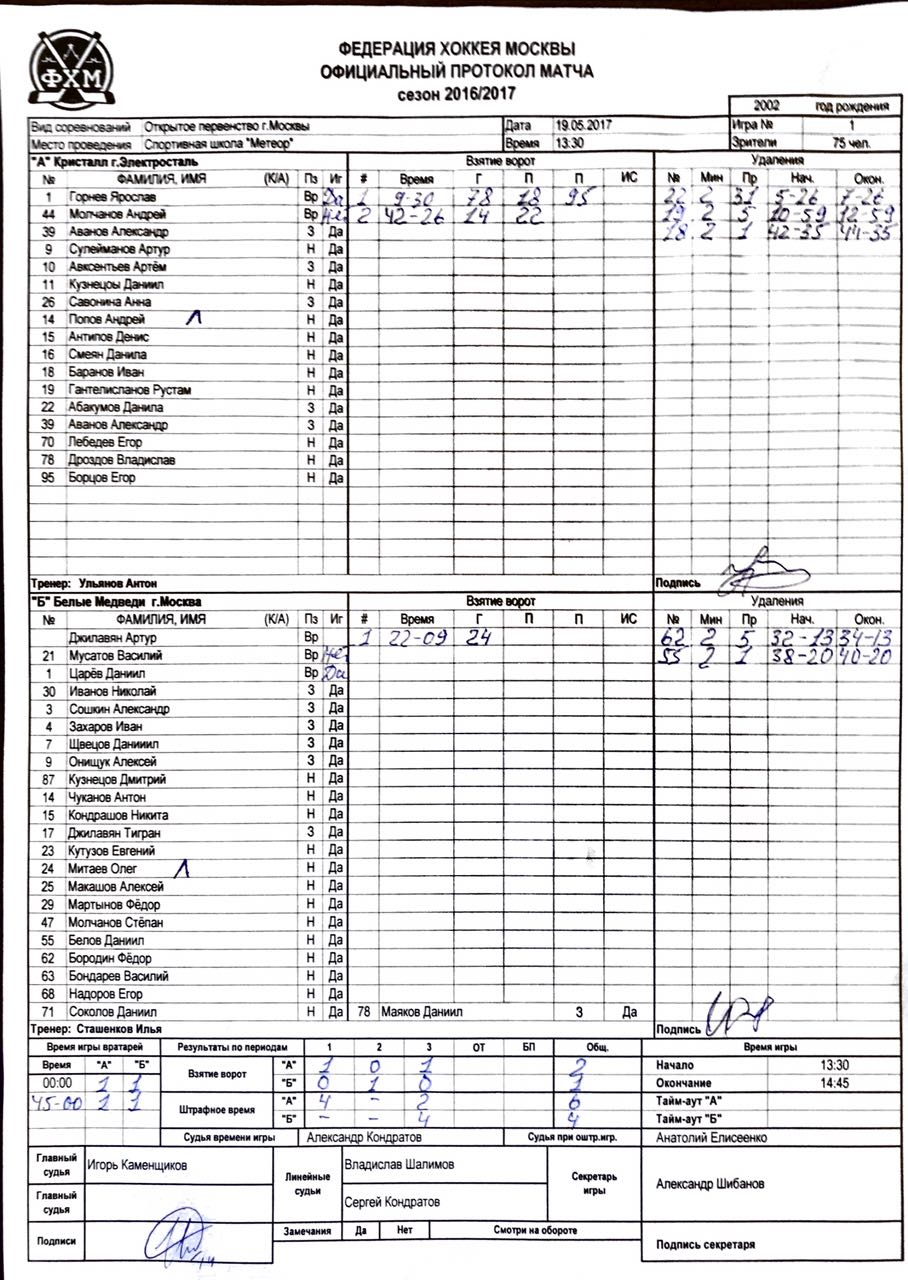 ФХМ
ФЕДЕРАЦИЯ ХОККЕЯ МОСКВЫ
ОФИЦИАЛЬНЫЙ ПРОТОКОЛ МАТЧА
сезон 2016/2017
2002 год рождения
Вид соревнований Открытое первенство г.Москвы Дата 19.05.2017 Игра № 1
Место проведения Спортивная школа "Метеор" Время 13:30 Зрители 75 чел.
"А" Кристалл г.Электросталь Взятие ворот Удаления
№ ФАМИЛИЯ, ИМЯ (К/А) Пз Иг # Время Г П П ИС № Мин Пр Нач. Окон.
1 Горнев Ярослав Вр Да 1 9-30 78 18 95 22 2 31 5-26 7-26
44 Молчанов Андрей Вр Нет 2 42-26 14 22 19 2 5 10-59 12-59
39 Аванов Александр З Да 18 2 1 42-35 44-35
9 Сулейманов Артур Н Да
10 Авксентьев Артём З Да
11 Кузнецоы Даниил Н Да
26 Савонина Анна З Да
14 Попов Андрей Л Н Да
15 Антипов Денис Н Да
16 Смеян Данила Н Да
18 Баранов Иван Н Да
19 Гантелисланов Рустам Н Да
22 Абакумов Данила З Да
39 Аванов Александр З Да
70 Лебедев Егор Н Да
78 Дроздов Владислав Н Да
95 Борцов Егор Н Да
Тренер: Ульянов Антон Подпись
"Б" Белые Медведи г.Москва Взятие ворот Удаления
№ ФАМИЛИЯ, ИМЯ (К/А) Пз Иг # Время Г П П ИС № Мин Пр Нач. Окон.
Джилавян Артур Вр 1 22-09 24 62 2 5 32-13 34-13
21 Мусатов Василий Вр Нет 55 2 1 38-20 40-20
1 Царёв Даниил Вр Да
30 Иванов Николай З Да
3 Сошкин Александр З Да
4 Захаров Иван З Да
7 Щвецов Данииил З Да
9 Онищук Алексей З Да
87 Кузнецов Дмитрий Н Да
14 Чуканов Антон Н Да
15 Кондрашов Никита Н Да
17 Джилавян Тигран З Да
23 Кутузов Евгений Н Да
24 Митаев Олег Л Н Да
25 Макашов Алексей Н Да
29 Мартынов Фёдор Н Да
47 Молчанов Стёпан Н Да
55 Белов Даниил Н Да
62 Бородин Фёдор Н Да
63 Бондарев Василий Н Да
68 Надоров Егор Н Да
71 Соколов Даниил Н Да 78 Маяков Даниил З Да
Тренер: Сташенков Илья Подпись
Время игры вратарей Результаты по периодам 1 2 3 ОТ БП Общ. Время игры
Время "А" "Б" Взятие ворот "А" 1 0 1 2 Начало 13:30
00:00 1 1 "Б" 0 1 0 1 Окончание 14:45
45-00 1 1 Штрафное время "А" 4 - 2 6 Тайм-аут "А"
"Б" - - 4 4 Тайм-аут "Б"
Судья времени игры Александр Кондратов Судья при оштр.игр. Анатолий Елисеенко
Главный судья Игорь Каменщиков Линейные судьи Владислав Шалимов Секретарь игры Александр Шибанов
Главный судья Сергей Кондратов
Подписи Замечания Да Нет Смотри на обороте Подпись секретаря